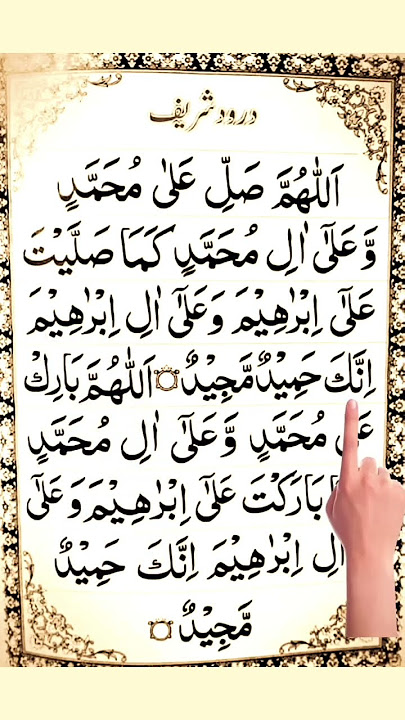 درود شریف
اَللّٰهُمَّ صَلِّ عَلٰی مُحَمَّدٍ
وَّ عَلٰۤی اٰلِ مُحَمَّدٍ کَمَا صَلَّیْتَ
عَلٰۤی اِبْرٰهِیْمَ وَ عَلٰۤی اٰلِ اِبْرٰهِیْمَ
اِنَّكَ حَمِیْدٌ مَّجِیْدٌ ۝ اَللّٰهُمَّ بَارِكْ
مُحَمَّدٍ وَّ عَلٰۤی اٰلِ مُحَمَّدٍ
بَارَكْتَ عَلٰۤی اِبْرٰهِیْمَ وَ عَلٰۤی
اِبْرٰهِیْمَ اِنَّكَ حَمِیْدٌ
مَّجِیْدٌ ۝